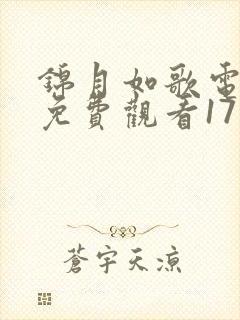 錦月如歌電
免費觀看17
蒼宇天涼